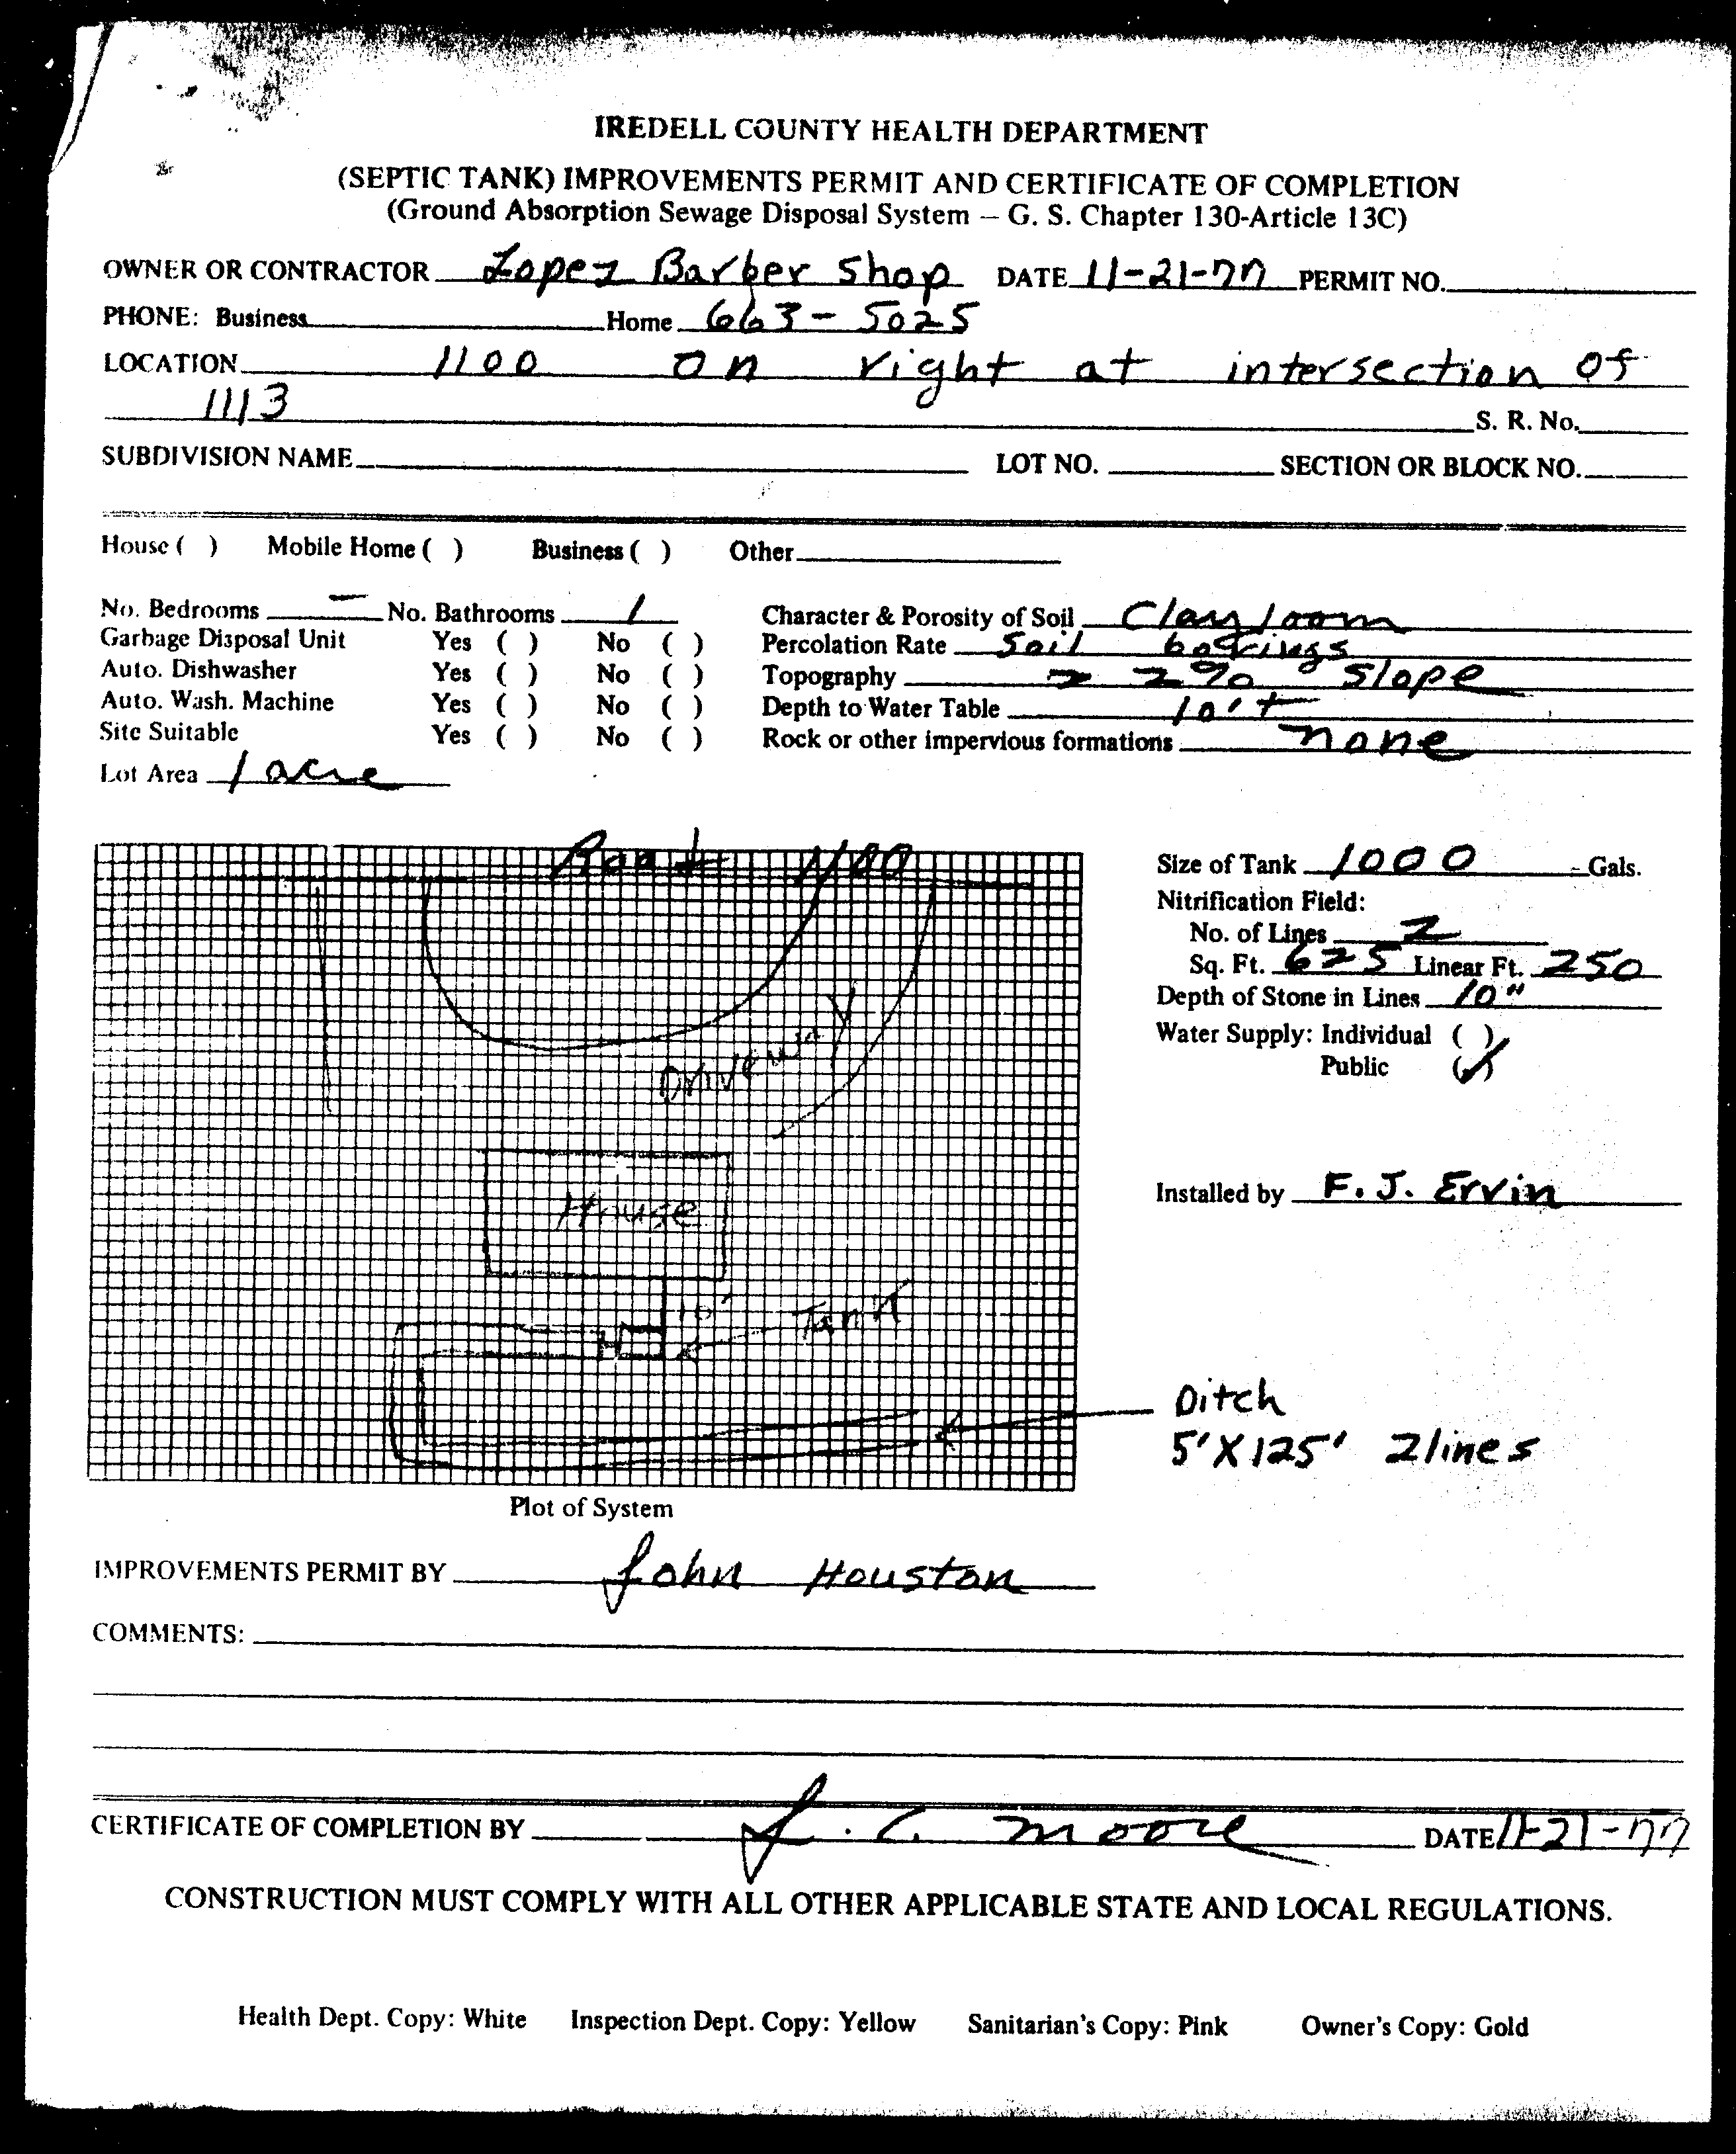 IREDELL COUNTY HEALTH DEPARTMENT
(SEPTIC TANK) IMPROVEMENTS PERMIT AND CERTIFICATE OF COMPLETION
(Ground Absorption Sewage Disposal System — G. S. Chapter 130-Article 13C)
OWNER OR CONTRACTOR Lopez Barber Shop DATE 11-21-77 PERMIT NO.
PHONE: Business Home 663-5025
LOCATION 1100 on right at intersection of
1113 S. R. No.
SUBDIVISION NAME LOT NO. SECTION OR BLOCK NO.
House ( ) Mobile Home ( ) Business ( ) Other
No. Bedrooms — No. Bathrooms 1 Character & Porosity of Soil Clay loam
Garbage Disposal Unit Yes ( ) No ( ) Percolation Rate Soil borings
Auto. Dishwasher Yes ( ) No ( ) Topography 2% Slope
Auto. Wash. Machine Yes ( ) No ( ) Depth to Water Table 10'+
Site Suitable Yes ( ) No ( ) Rock or other impervious formations none
Lot Area 1 acre
Road 1100
Size of Tank 1000 - Gals.
Nitrification Field:
No. of Lines 2
Sq. Ft. 625 Linear Ft. 250
Depth of Stone in Lines 10"
Water Supply: Individual ( )
Public (✓)
Driveway
Installed by F. J. Ervin
House
10' Tank
Ditch
5' X 125' 2 lines
Plot of System
IMPROVEMENTS PERMIT BY John Houston
COMMENTS:
CERTIFICATE OF COMPLETION BY J. C. Moore DATE 11-21-77
CONSTRUCTION MUST COMPLY WITH ALL OTHER APPLICABLE STATE AND LOCAL REGULATIONS.
Health Dept. Copy: White Inspection Dept. Copy: Yellow Sanitarian's Copy: Pink Owner's Copy: Gold